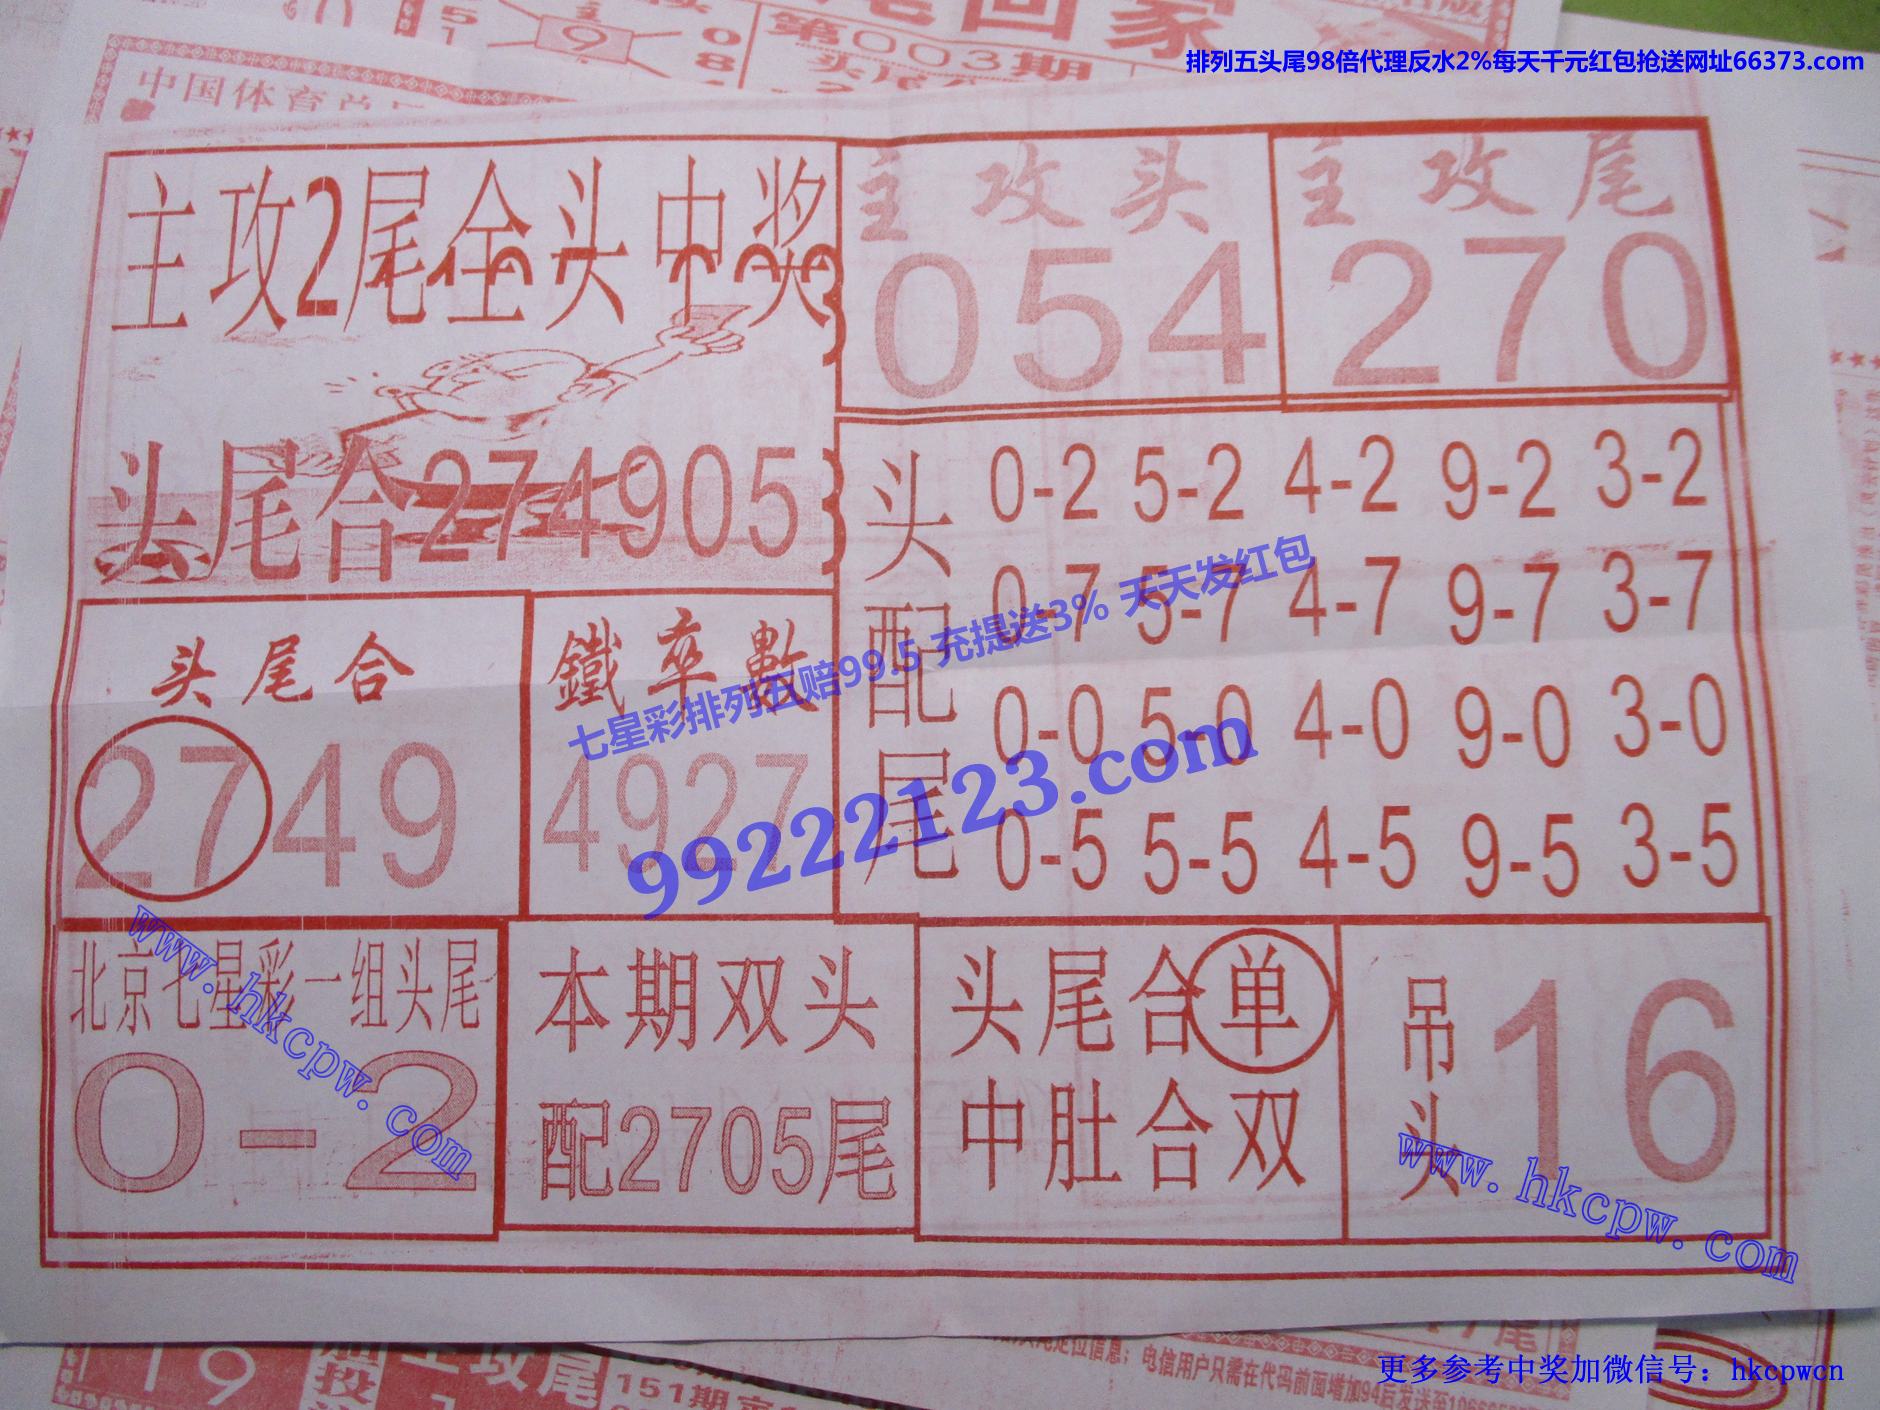 排列五头尾98倍代理反水2%每天千元红包抢送网址66373.com
尾回家
第003期
9
中国体育总局
主攻2尾全头中奖
头尾合274905
主攻头
054
主攻尾
270
头配尾
0-2 5-2 4-2 9-2 3-2
0-7 5-7 4-7 9-7 3-7
0-0 5-0 4-0 9-0 3-0
0-5 5-5 4-5 9-5 3-5
头尾合
2749
鐵卒數
4927
七星彩排列五赔99.5 充提送3% 天天发红包
99222123.com
北京七星彩一组头尾
0-2
本期双头
配2705尾
头尾合单
中肚合双
吊头
16
www.hkcpw.com
www.hkcpw.com
19
主攻尾
电信用户只需在代码前面增加94后发送至
更多参考中奖加微信号：hkcpwcn